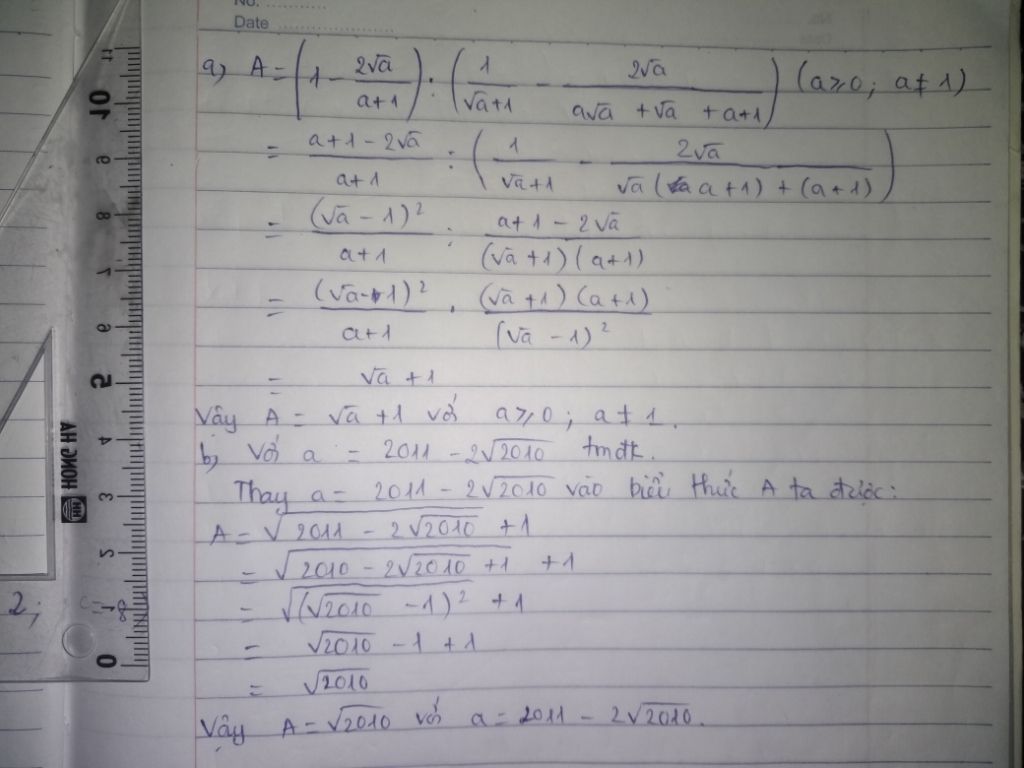 No. ............
Date ....................
a, A = (1 - 2√a / a+1) : (1 / √a+1 - 2√a / a√a + √a + a+1) (a≥0; a≠1)
= a+1-2√a / a+1 : (1 / √a+1 - 2√a / √a(a+1) + (a+1))
= (√a-1)² / a+1 : a+1-2√a / (√a+1)(a+1)
= (√a-1)² / a+1 . (√a+1)(a+1) / (√a-1)²
= √a+1
Vậy A = √a+1 với a≥0; a≠1.
b, Với a = 2011 - 2√2010 tmđk.
Thay a = 2011 - 2√2010 vào biểu thức A ta được:
A = √(2011 - 2√2010) + 1
= √(2010 - 2√2010 + 1) + 1
= √((√2010 - 1)²) + 1
= √2010 - 1 + 1
= √2010
Vậy A = √2010 với a = 2011 - 2√2010.
2;
HONG HA
0 1 2 3 4 5 6 7 8 9 10 11